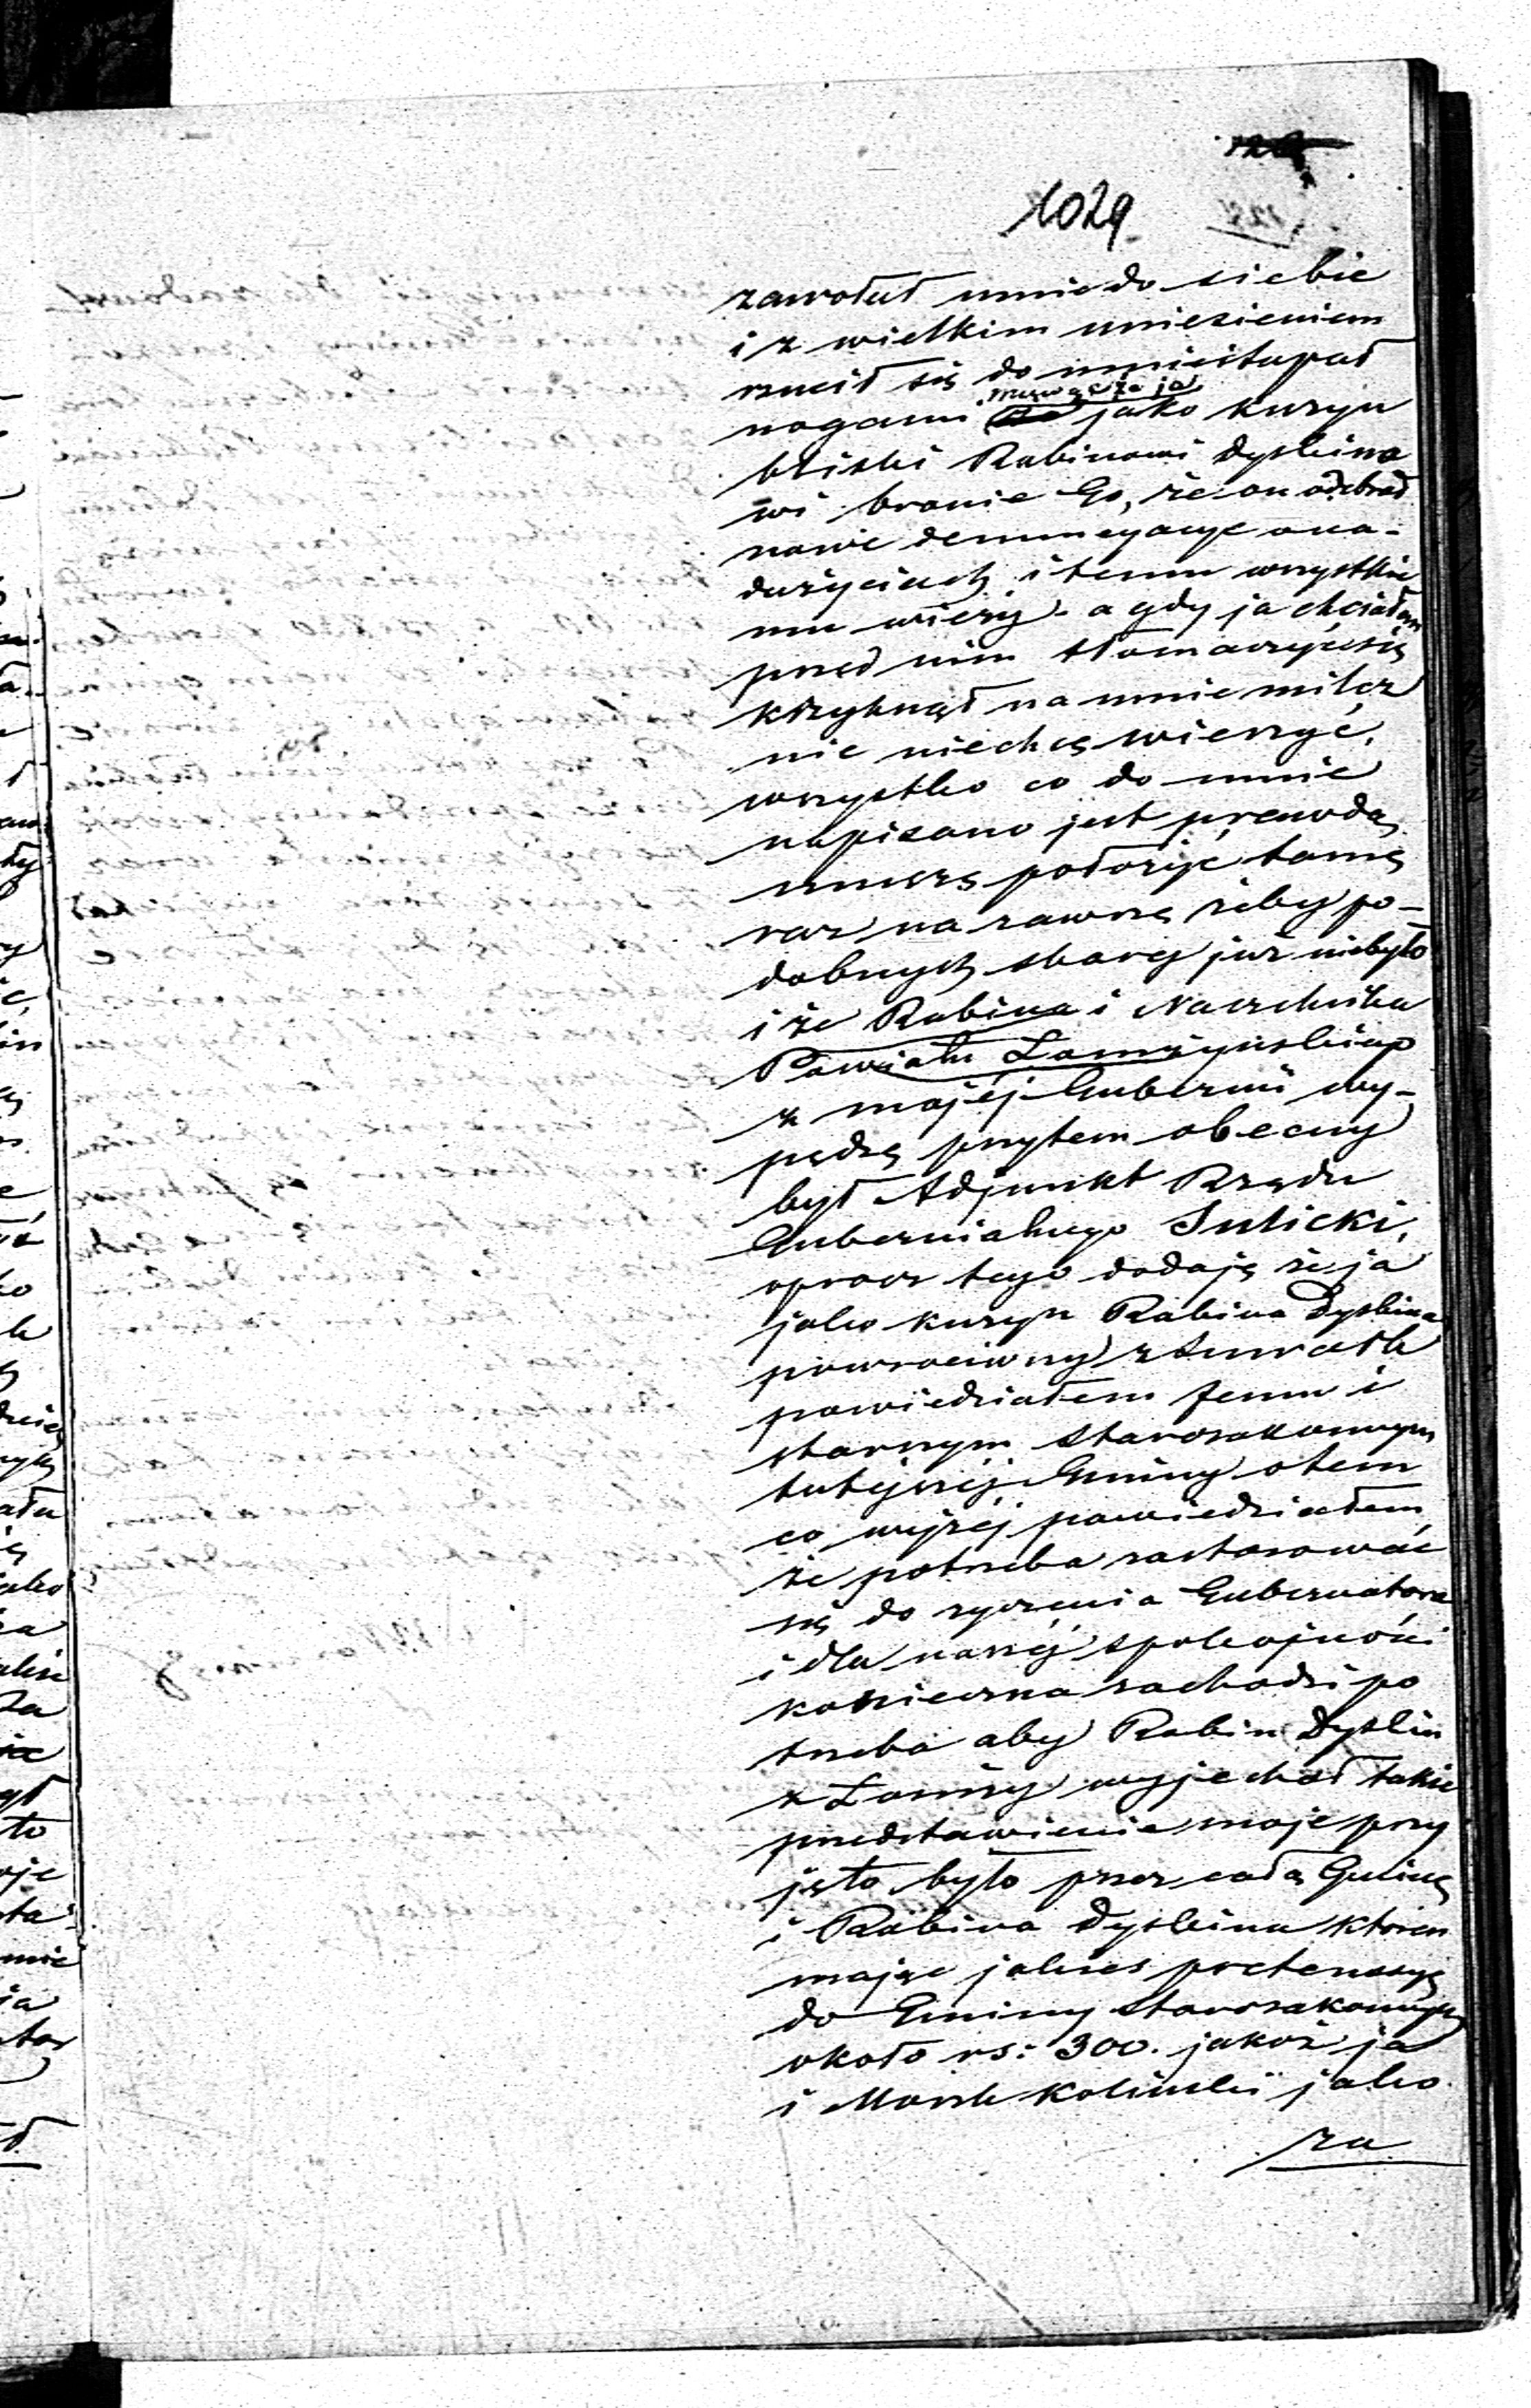 1029
zawołał mnie do siebie
i z wielkim uniesieniem
rzucił się do mnie i tupał
nogami mówiąc że ja jako kuzyn
bliski Rabinowi Dyskino
wi bronię Go, że on odebrał
nowe denuncyacye o na-
dużyciach i temu wszystkie
mu wierzy - a gdy ja chciałem
przed nim tłomaczyć się
krzyknął na mnie milcz
nic niechcę wierzyć,
wszystko co do mnie
napisano jest prawdą
muszę położyć tamę
raz na zawsze żeby po-
dobnych skarg już niebyło
i że Rabina i Naczelnika
Powiatu Łomżyńskiego
z mojéj Gubernii wy-
pędzę przytem obecny
był Adjunkt Rządu
Gubernialnego Sulicki,
oprocz tego dodaję że ja
jako kuzyn Rabina Dyskina
powrociwszy z Suwałk
powiedziałem Jemu i
starszym Starozakonnym
tutéjszéj Gminy o tem
co wyżéj powiedziałem
że potrzeba zastosować
się do życzenia Gubernatora
i dla naszéj spokojności
konieczna zachodzi po
trzeba aby Rabin Dyskin
z Łomży wyjechał takie
przedstawienie moje przy
jęto było przez całą Gminę
i Rabina Dyskina ktoren
mając jakieś pretensyę
do Gminy Starozakonnych
około rs: 300. jakoż ja
i Morsk Koliński jako
za